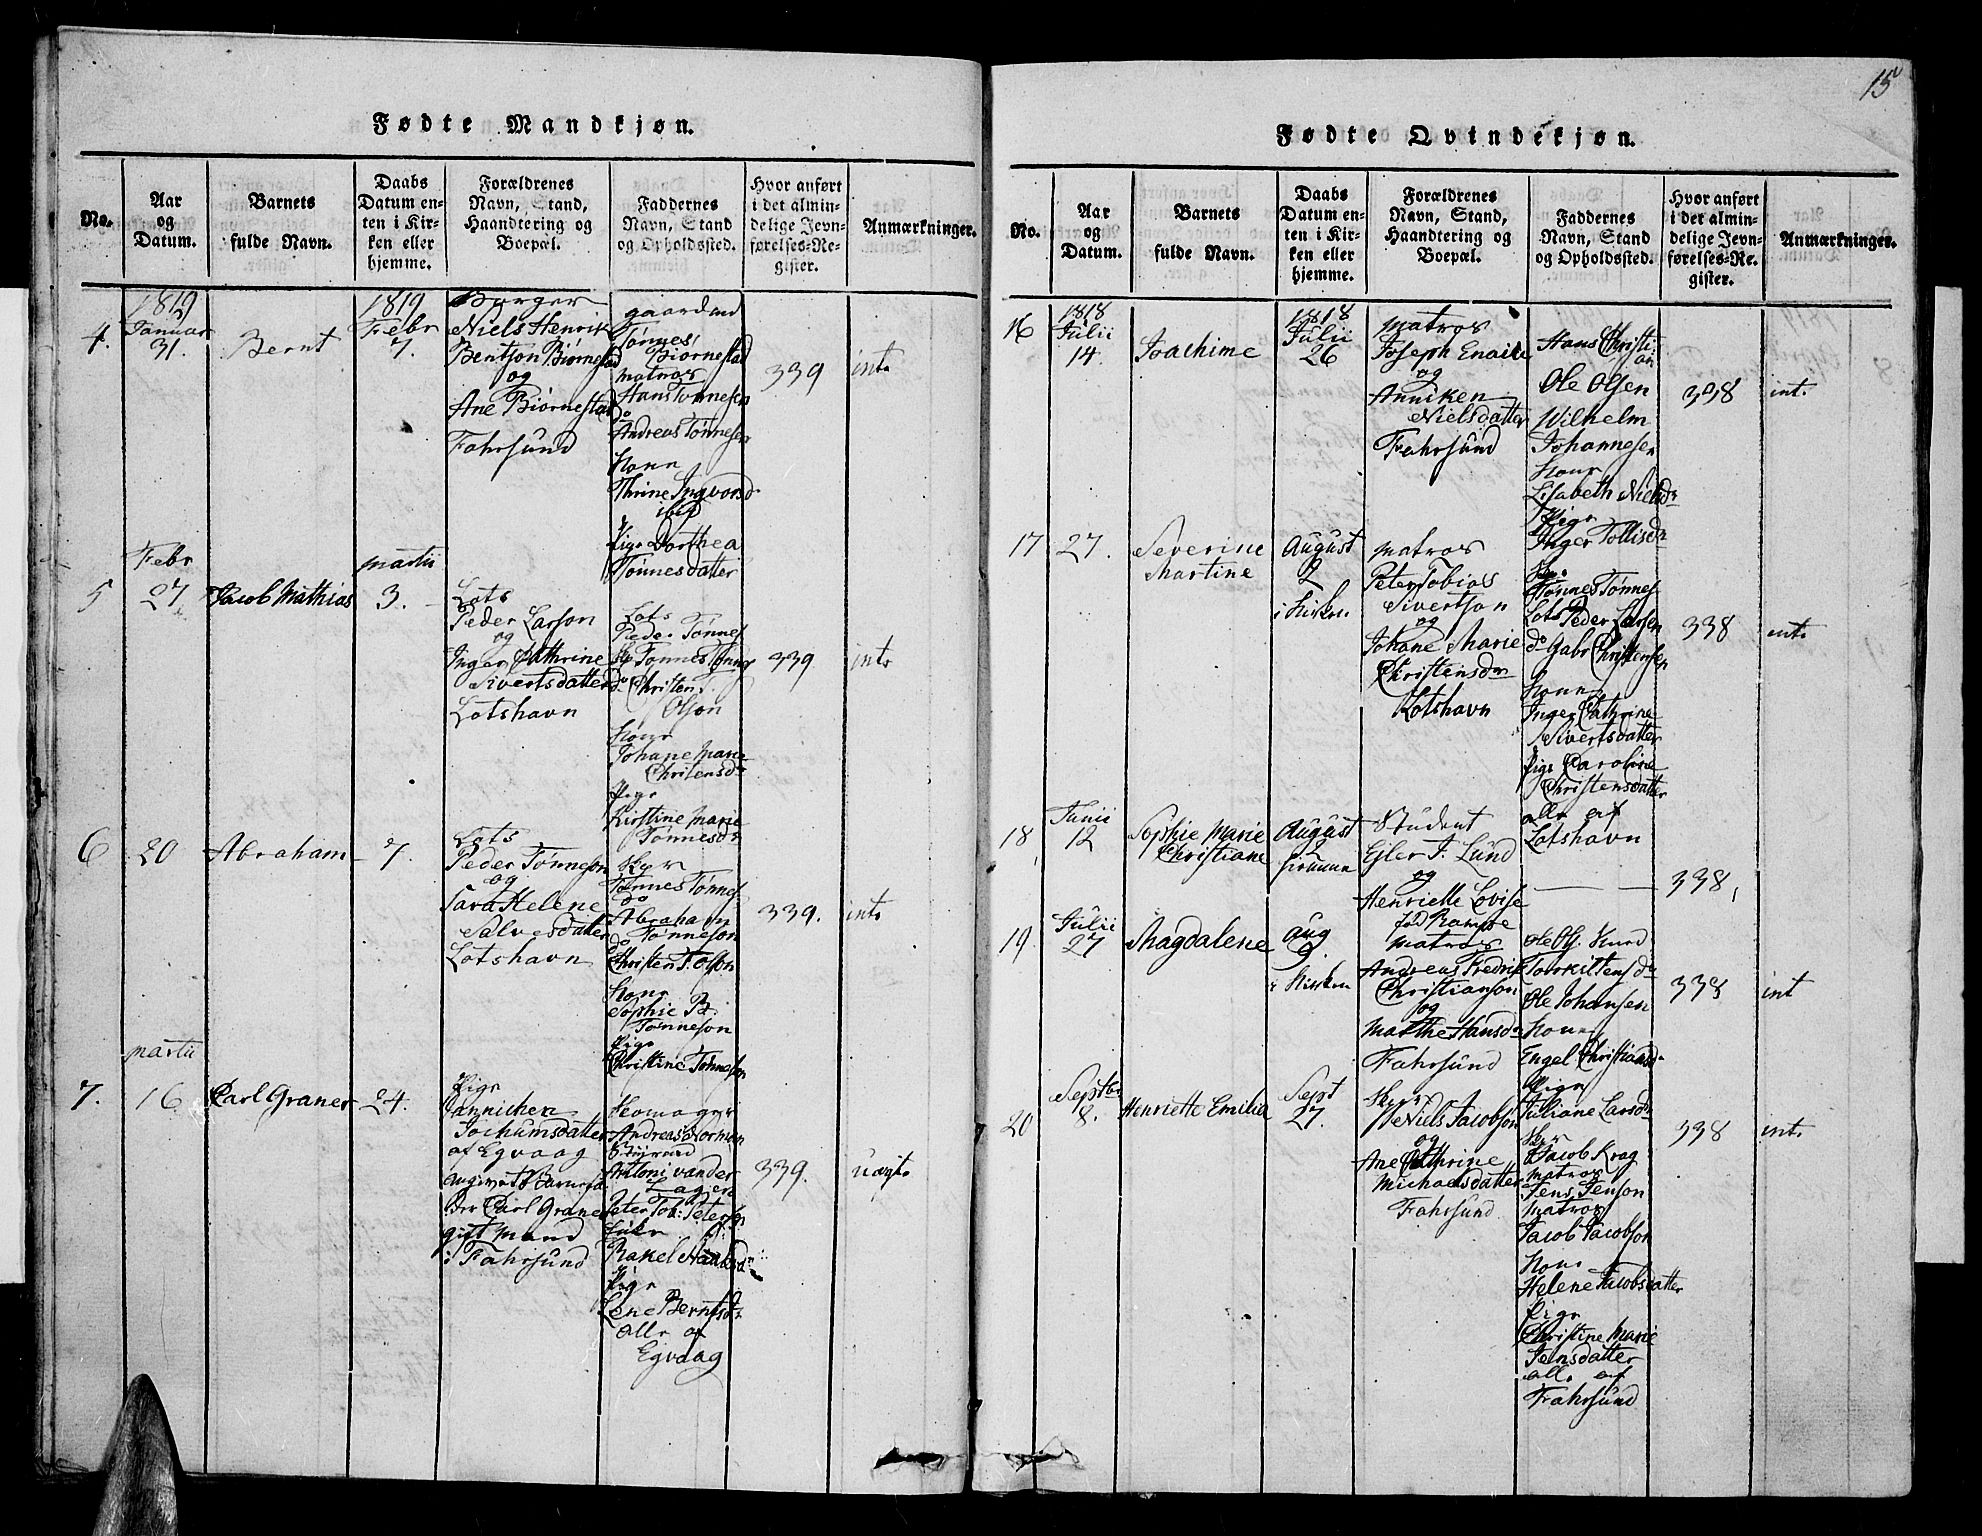 15
Fødte Mandkjøn.
No.
Aar
og
Datum.
Barnets
fulde Navn.
Daabs
Datum en-
ten i Kir-
ken eller
hjemme.
Forældrenes
Navn, Stand,
Haandtering og
Boepæl.
Faddernes
Navn, Stand
og Opholdssted.
Hvor anført
i det almin-
delige Jevn-
førelses-Re-
gister.
Anmærkninger.
4.
1819
Januar
31.
Bernt
1819
Febr
7.
Borger
Niels Henrik
Bentson Biørnestad
og
Ane Biørnestad
Fahrsund
gaardmd
Tønnes
Biørnestad
matros
Hans Tønnesen
do
Andreas Tønnesen
Kone
Thrine Ingvorsd
ibid
Pige Dorthea
Tønnesdatter
339
int.
5
Febr
27.
Jacob Mathias
martii
3.
Lots
Peder Larson
og
Inger Cathrine
Sivertsdatter
Lotshavn
Lots
Peder Tønnes
Tønnes Tønnes
do Christen
Olson
Kone
Johane Marie
Christensdr
Pige
Kirstine Marie
Tønnesdr
339
int.
6
20
Abraham
7.
Lots
Peder Tønneson
og
Sara Helene
Salvesdatter
Lotshavn
Tønnes Tønnes
do
Abraham
Tønneson
do
Christen T. Olson
Kone
Sophie P.
Tønneson
Pige
Christine Tønneson
339.
int.
7.
martii
16
Carl Graner
24.
Pige
Jannichen
Jochumsdatter
af Egvaag
Carl Graner
gift mand
i Fahrsund
Andreas Norman
Antoni vander
Lagen
Peter Tob: Petersøn
Rakel
Pige
Lene Berntsdr
alle af
Egvaag
339.
uægte
Fødte Qvindekjøn.
No.
Aar
og
Datum.
Barnets
fulde Navn.
Daabs
Datum en-
ten i Kir-
ken eller
hjemme.
Forældrenes
Navn, Stand,
Haandtering og
Boepæl.
Faddernes
Navn, Stand
og Opholdssted.
Hvor anført
i det almin-
delige Jevn-
førelses-Re-
gister.
Anmærkninger.
16
1818
Julii
14.
Joachime
1818
Julii
26
matros
Joseph
og
Anniken
Nielsdatter
Fahrsund
Hans Christi
an
Ole Olsen
Wilhelm
Johannesen
Kone
Lisabeth Nielsdr
Pige
Inger Tollisdr
338
int.
17
27.
Severine
Martine
August
2
i Kirken
matros
Peter Tobias
Sivertson
og
Johane Marie
Christensdr
Lotshavn
Tønnes Tønnes
Lots Peder Larsen
do Gabr Christensen
Kone
Inger Cathrine
Sivertsdatter
Pige Caroline
Christensdatter
alle af
Lotshavn
338
int.
18
Junii
12
Sophie Marie
Christiane
August
2
Student
Ejler J. Lund
og
Henriette Lovise
338
19.
Julii
27
Magdalene
Aug
9.
i Kirken
matros
Andreas Fredrik
Christianson
og
Marthe Hansdr
Fahrsund
Ole Johansen
Kone
Engel Christiansd
Pige
Juliane Larsdr
338
int
20
Septbr
8.
Henriette Emilia
Sept
27.
Niels Jacobson
og
Ane Cathrine
Michaelsdatter
Fahrsund
Jacob Krog
matros
Jens Jenson
Matros
Jacob Jacobson
Kone
Helene Jacobsdatter
Pige
Christine Marie
Jensdatter
alle af
Fahrsund
338
int.